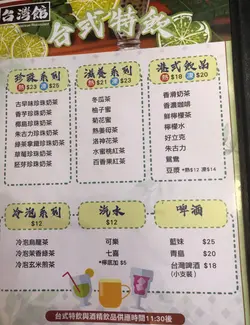 台灣館
台式特飲
珍珠系列
熱 $23 凍 $25
白早味珍珠奶茶
香芋珍珠奶茶
椰香珍珠奶茶
朱古力珍珠奶茶
綠茶拿鐵珍珠奶茶
草莓珍珠奶茶
胚芽珍珠奶茶
滋養系列
熱 $21 凍 $23
冬瓜茶
柚子蜜
菊花蜜
熱薑母茶
洛神花茶
水蜜桃紅茶
百香果紅茶
港式飲品
熱 $18 凍 $20
香滑奶茶
香濃咖啡
鮮檸檬茶
檸檬水
好立克
朱古力
鴛鴦
豆漿 •熱$12 凍$14
冷泡系列
$12
冷泡烏龍茶
冷泡茉香綠茶
冷泡玄米煎茶
汽水
$12
可樂
七喜
*檸底加 $5
啤酒
藍妹 $25
青島 $20
台灣啤酒 $18
(小支裝)
台式特飲與酒精飲品供應時間11:30後